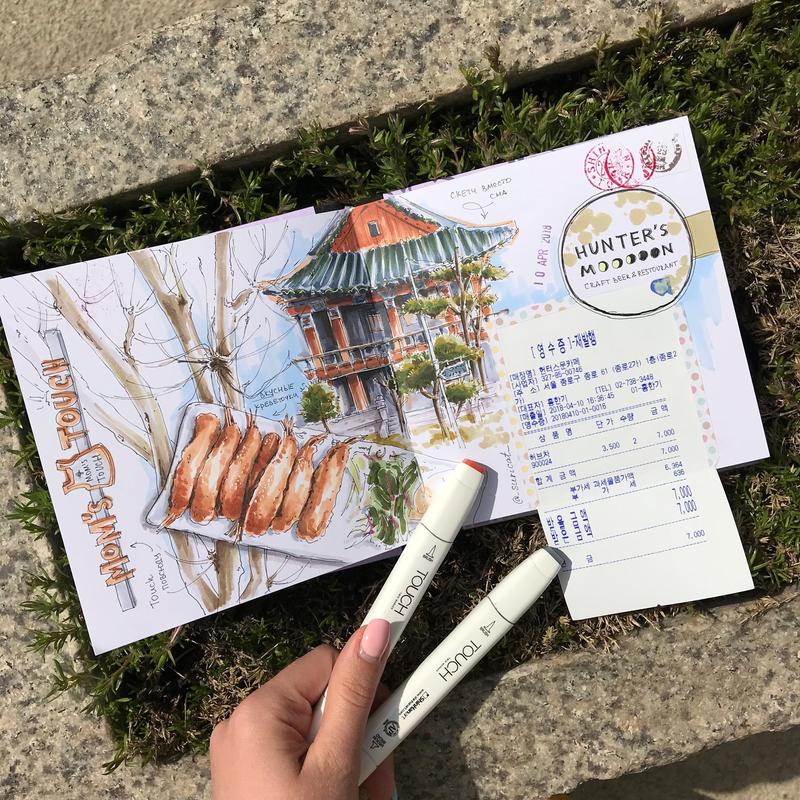 MOM'S TOUCH
MOM'S
TOUCH
Touch
повсюду
вкусные
креветочки
скетч вместо
сна
10 APR 2018
HUNTER'S
MOOOOON
CRAFT BEER & RESTAURANT
SHIN
[영수증]-재발행
[매장명] 헌터스문카페
[사업자] 327-85-00746
[주 소] 서울 종로구 종로 61 (종로2가) 1층(종로2
가)
[대표자] 홍한기 [TEL] 02-738-3448
[매출일] 2018-04-10 16:36:45 01-홍한기
[영수증] 20180410-01-0018
상 품 명 단가 수량 금액
허브차 3,500 2 7,000
900024
합계 금액 7,000
부가세 과세물품가액 6,364
부 가 세 636
7,000
7,000
금 7,000
TOUCH
TOUCH
ShinHanart